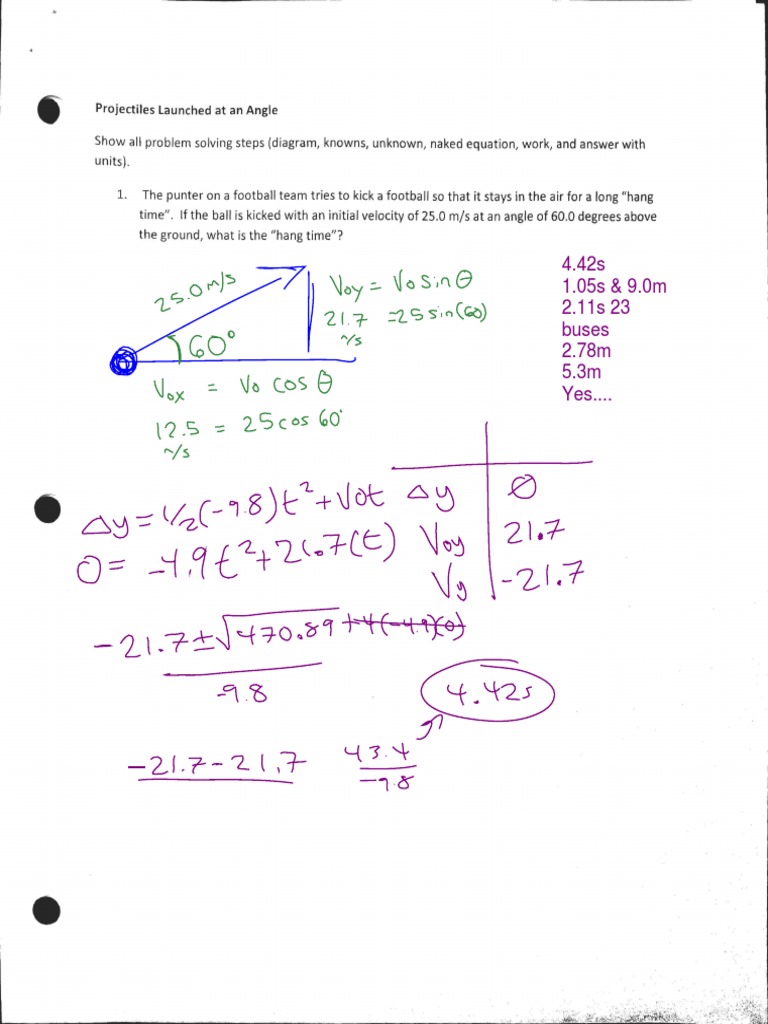 Projectiles Launched at an Angle
Show all problem solving steps (diagram, knowns, unknown, naked equation, work, and answer with
units).
1. The punter on a football team tries to kick a football so that it stays in the air for a long "hang
time". If the ball is kicked with an initial velocity of 25.0 m/s at an angle of 60.0 degrees above
the ground, what is the "hang time"?
4.42s
1.05s & 9.0m
2.11s 23
buses
2.78m
5.3m
Yes....
25.0 m/s
60°
Voy = Vo sin θ
21.7 = 25 sin(60)
m/s
Vox = Vo cos θ
12.5 = 25 cos 60°
m/s
Δy = 1/2(-9.8)t² + Vot
0 = -4.9t² + 21.7(t)
Δy 0
Voy 21.7
Vy -21.7
-21.7 ± √470.89 + 4(-4.9)(0)
-9.8
4.42s
-21.7 - 21.7
43.4
-9.8